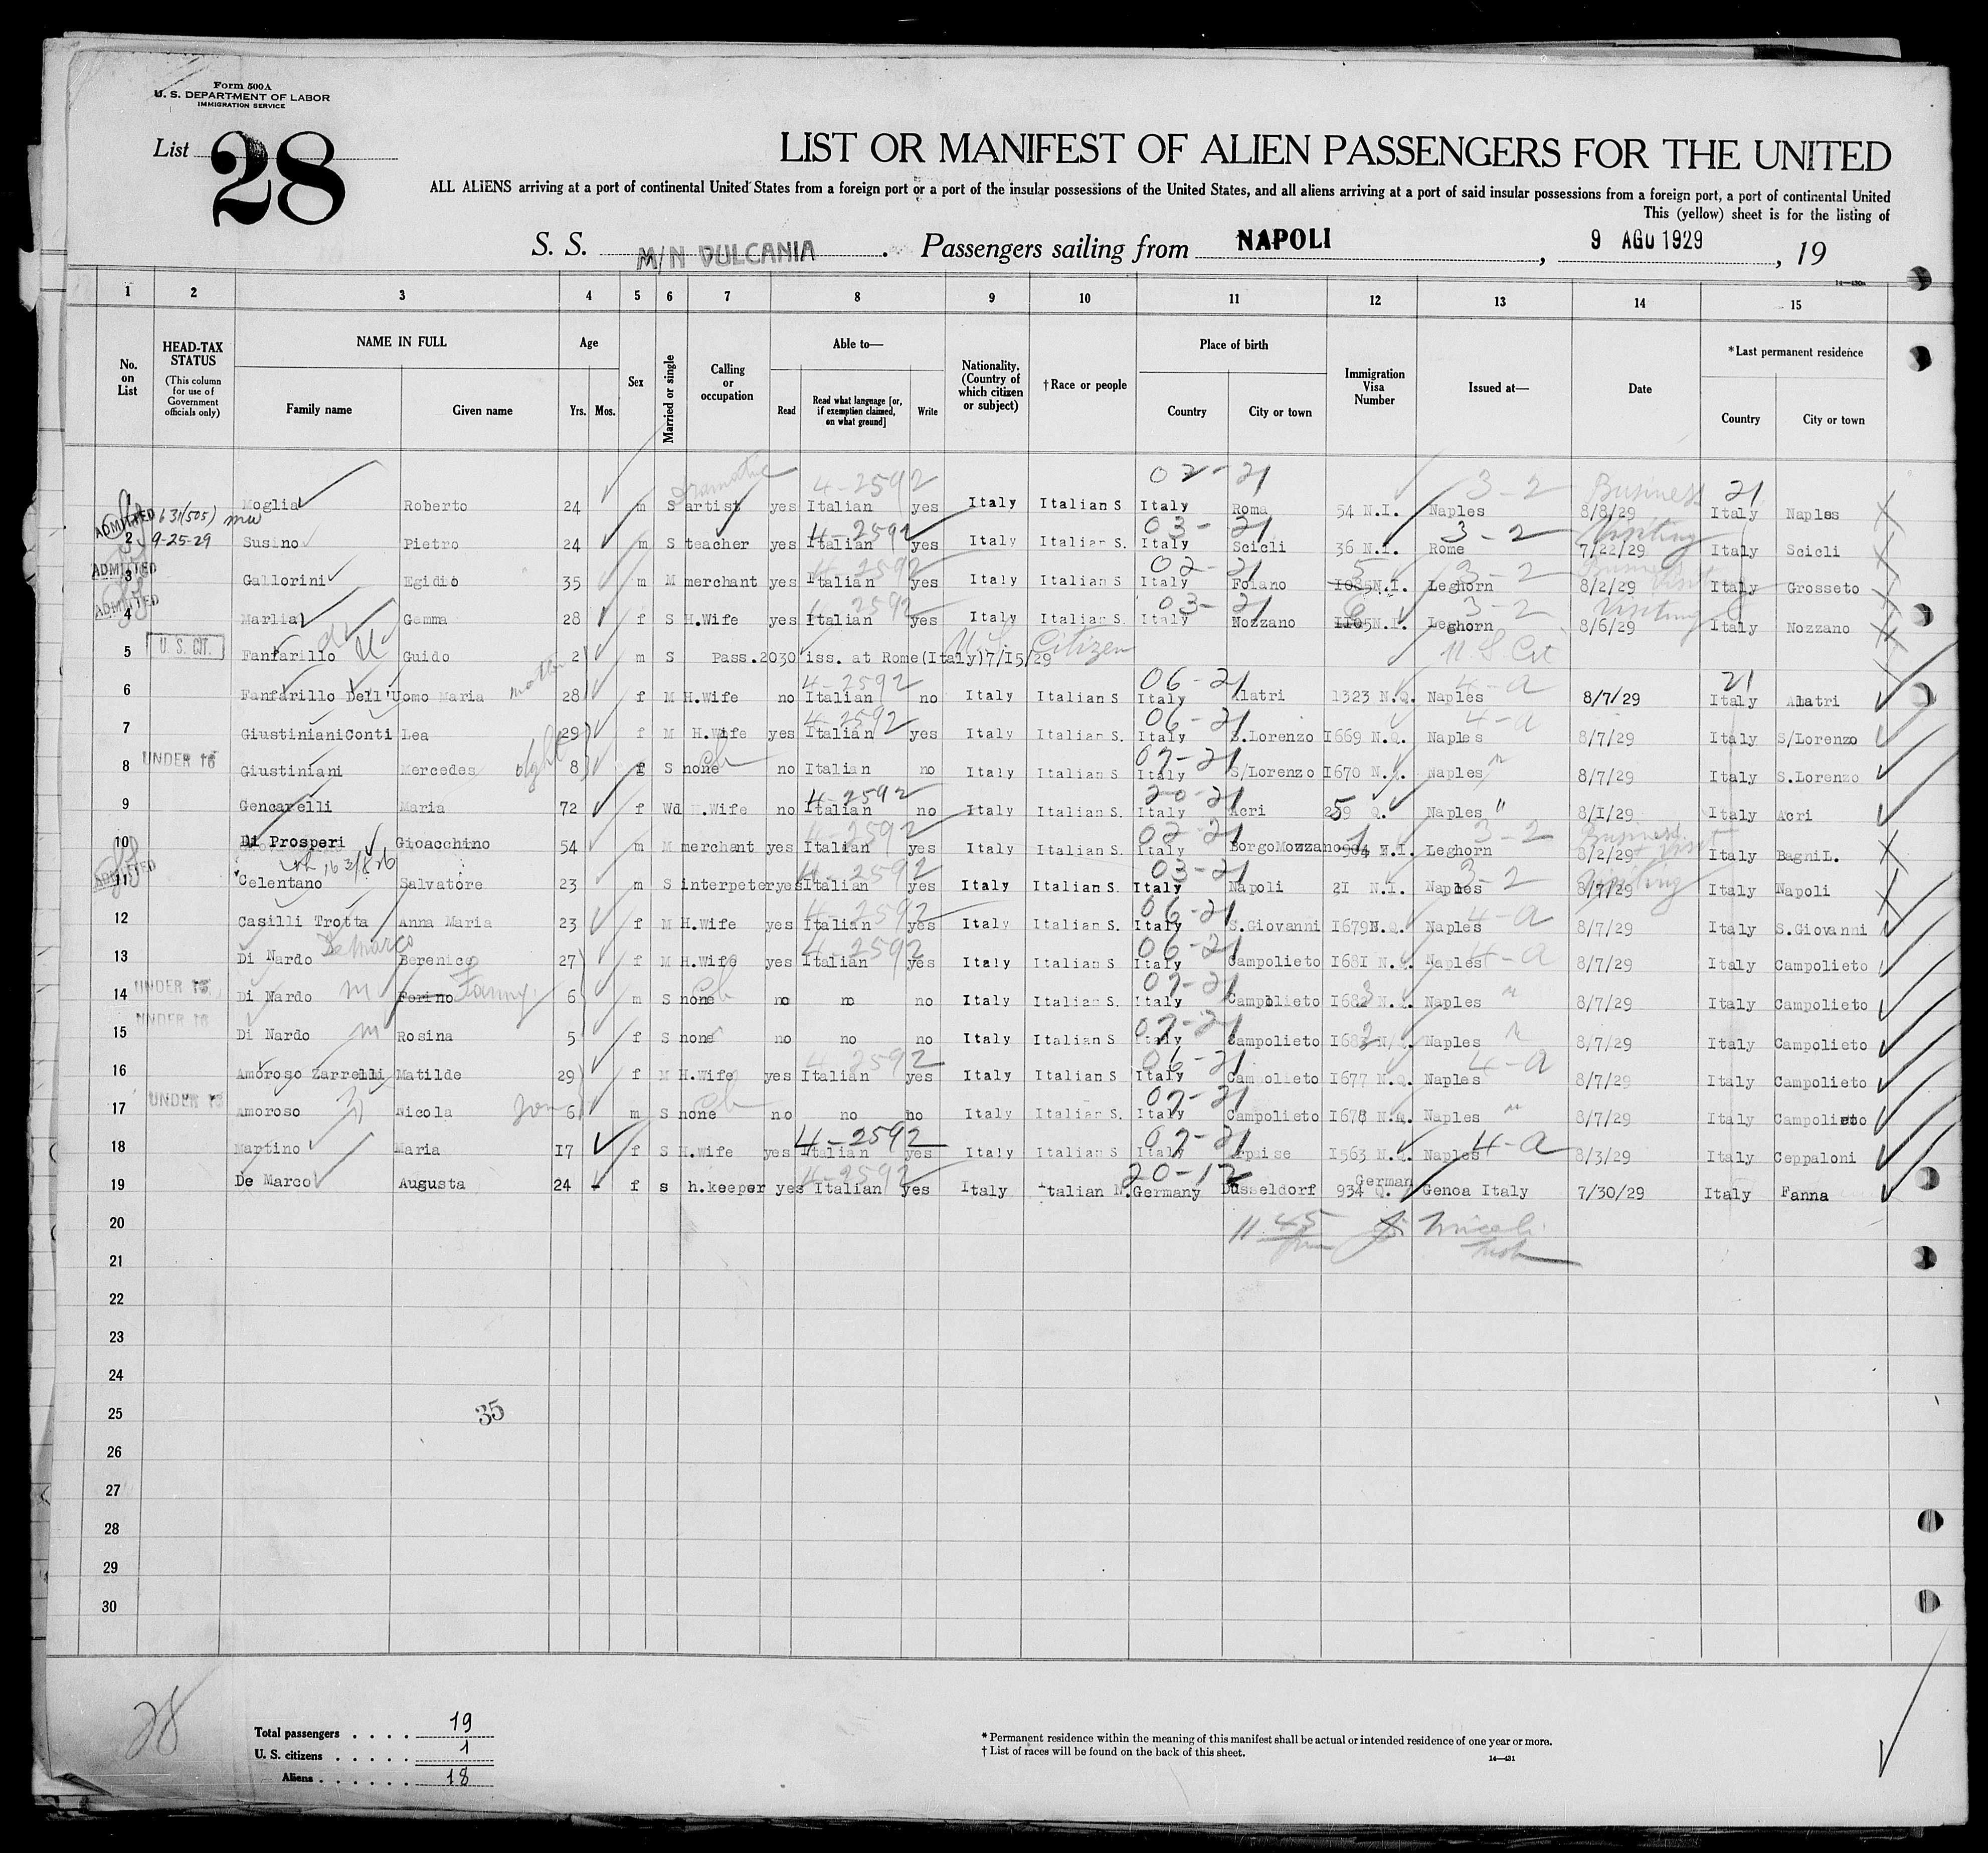 Form 500A
U. S. DEPARTMENT OF LABOR
IMMIGRATION SERVICE
List 28
LIST OR MANIFEST OF ALIEN PASSENGERS FOR THE UNITED
ALL ALIENS arriving at a port of continental United States from a foreign port or a port of the insular possessions of the United States, and all aliens arriving at a port of said insular possessions from a foreign port, a port of continental United
This (yellow) sheet is for the listing of
S. S. M/N VULCANIA . Passengers sailing from NAPOLI , 9 AGO 1929 , 19
14—430a
1 2 3 4 5 6 7 8 9 10 11 12 13 14 15
No. on List
HEAD-TAX STATUS (This column for use of Government officials only)
NAME IN FULL Family name Given name
Age Yrs. Mos.
Sex
Married or single
Calling or occupation
Able to— Read Read what language [or, if exemption claimed, on what ground] Write
Nationality. (Country of which citizen or subject)
†Race or people
Place of birth Country City or town
Immigration Visa Number
Issued at—
Date
*Last permanent residence Country City or town
dramatic 4-2592 02-21 3-2 Business 21
1 ADMITTED 631(505) Moglia Roberto 24 m S artist yes Italian yes Italy Italian S Italy Roma 54 N.I. Naples 8/8/29 Italy Naples
4-2592 03-21 3-2 Visiting
2 9-25-29 Susino Pietro 24 m S teacher yes Italian yes Italy Italian S. Italy Scicli 36 N.I. Rome 7/22/29 Italy Scicli
4-2592 02-21 3-2 Business Visit
3 ADMITTED Gallorini Egidio 35 m M merchant yes Italian yes Italy Italian S Italy Foiano 1085 N.I. Leghorn 8/2/29 Italy Grosseto
4-2592 03-21 3-2 Visiting
4 ADMITTED Marlia Gemma 28 f S H.Wife yes Italian yes Italy Italian S. Italy Nozzano 1105 N.I. Leghorn 8/6/29 Italy Nozzano
U. S. Citizen U. S. Cit
5 U. S. CIT. Fanfarillo Guido 2 m S Pass.2030 iss. at Rome(Italy)7/15/29
mother 4-2592 06-21 4-a 21
6 Fanfarillo Dell'Uomo Maria 28 f M H.Wife no Italian no Italy Italian S Italy Alatri 1323 N.Q. Naples 8/7/29 Italy Alatri
4-2592 06-21 4-a
7 Giustiniani Conti Lea 29 f M H.Wife yes Italian yes Italy Italian S. Italy S.Lorenzo 1669 N.Q. Naples 8/7/29 Italy S/Lorenzo
UNDER 16 dght 07-21
8 Giustiniani Mercedes 8 f S none no Italian no Italy Italian S Italy S/Lorenzo 1670 N.Q. Naples " 8/7/29 Italy S.Lorenzo
4-2592 20-21
9 Gencarelli Maria 72 f Wd H.Wife no Italian no Italy Italian S Italy Acri 259 Q. Naples " 8/1/29 Italy Acri
4-2592 02-21 3-2 Business
10 Di Prosperi Gioacchino 54 m M merchant yes Italian yes Italy Italian S. Italy BorgoMozzano 904 N.I. Leghorn 8/2/29 Italy BagniL.
4-2592 03-21 3-2 Visiting
11 ADMITTED Celentano Salvatore 23 m S interpeter yes Italian yes Italy Italian S. Italy Napoli 21 N.I. Naples 8/7/29 Italy Napoli
4-2592 06-21
12 Casilli Trotta Anna Maria 23 f M H.Wife yes Italian yes Italy Italian S. Italy S.Giovanni 1679 N.Q. Naples 4-a 8/7/29 Italy S.Giovanni
De Marco 4-2592 06-21
13 Di Nardo Berenice 27 f M H.Wife yes Italian yes Italy Italian S. Italy Campolieto 1681 N.Q. Naples 4-a 8/7/29 Italy Campolieto
UNDER 16 Fanny 07-21
14 Di Nardo Forino 6 m S none no no no Italy Italian S. Italy Campolieto 1683 N.Q. Naples " 8/7/29 Italy Campolieto
UNDER 16 07-21
15 Di Nardo Rosina 5 f S none no no no Italy Italian S Italy Campolieto 1682 N.Q. Naples " 8/7/29 Italy Campolieto
4-2592 06-21 4-a
16 Amoroso Zarrelli Matilde 29 f M H.Wife yes Italian yes Italy Italian S Italy Campolieto 1677 N.Q. Naples 8/7/29 Italy Campolieto
UNDER 16 son 07-21
17 Amoroso Nicola 6 m S none no no no Italy Italian S. Italy Campolieto 1678 N.Q. Naples " 8/7/29 Italy Campolieto
4-2592 07-21
18 Martino Maria 17 f S H.wife yes Italian yes Italy Italian S Italy Arpaise 1563 N.Q. Naples 4-a 8/3/29 Italy Ceppaloni
4-2592 20-12 German
19 De Marco Augusta 24 - f s h.keeper yes Italian yes Italy Italian N. Germany Dusseldorf 934 Q. Genoa Italy 7/30/29 Italy Fanna
20
21
22
23
24
25
35
26
27
28
29
30
28
Total passengers . . . . 19
U. S. citizens . . . . . 1
Aliens . . . . . . . 18
* Permanent residence within the meaning of this manifest shall be actual or intended residence of one year or more.
† List of races will be found on the back of this sheet.
14—431